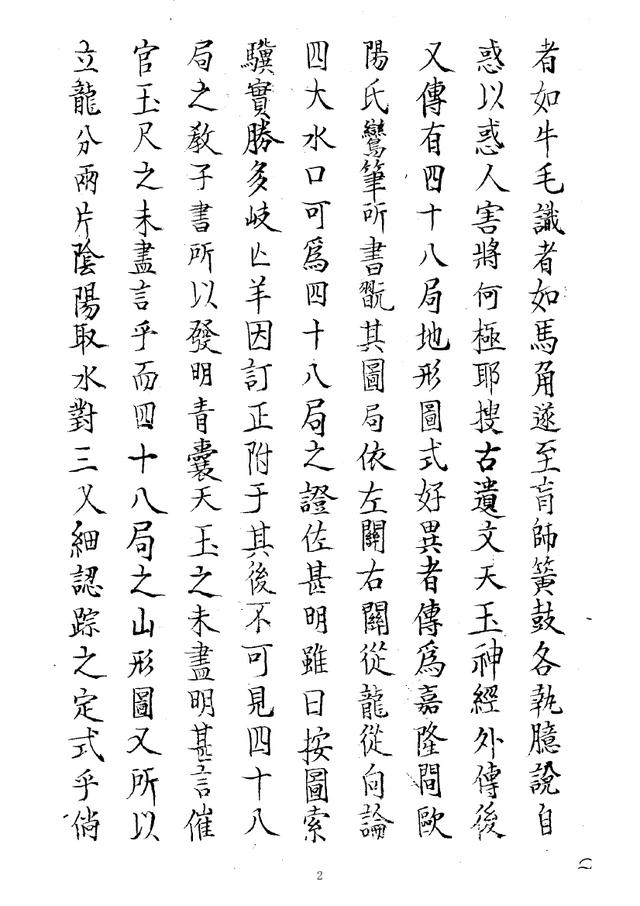 者如牛毛識者如馬角遂至盲師簧鼓各執臆說自
惑以惑人害將何極耶搜古遺文天玉神經外傳後
又傳有四十八局地形圖式好異者傳為嘉隆間歐
陽氏鸞筆所書翫其圖局依左關右關從龍從向論
四大水口可為四十八局之證佐甚明雖曰按圖索
驥實勝多岐亡羊因訂正附于其後不可見四十八
局之教子書所以發明青囊天玉之未盡明甚言催
官玉尺之未盡言乎而四十八局之山形圖又所以
立龍分兩片陰陽取水對三乂細認踪之定式乎倘
2